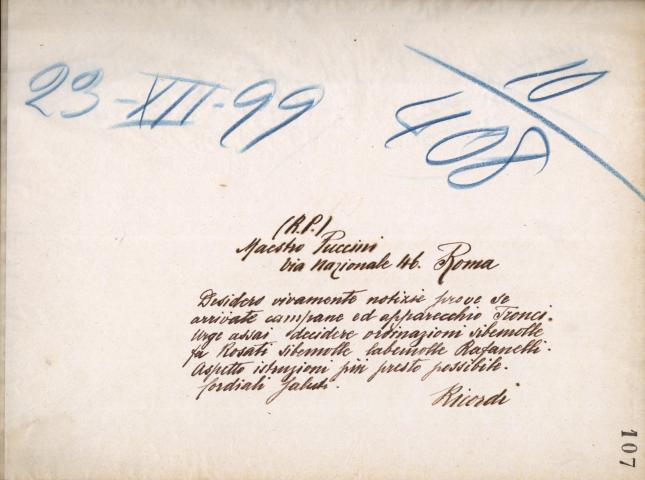 23-XII-99
10
408
(R.P.)
Maestro Puccini
Via Nazionale 46. Roma
Desidero vivamente notizie prove se
arrivate campane ed apparecchio Tronci.
Urge assai decidere ordinazioni sibemolle
fa Rosati sibemolle labemolle Rafanelli.
Aspetto istruzioni più presto possibile.
Cordiali saluti.
Ricordi
107